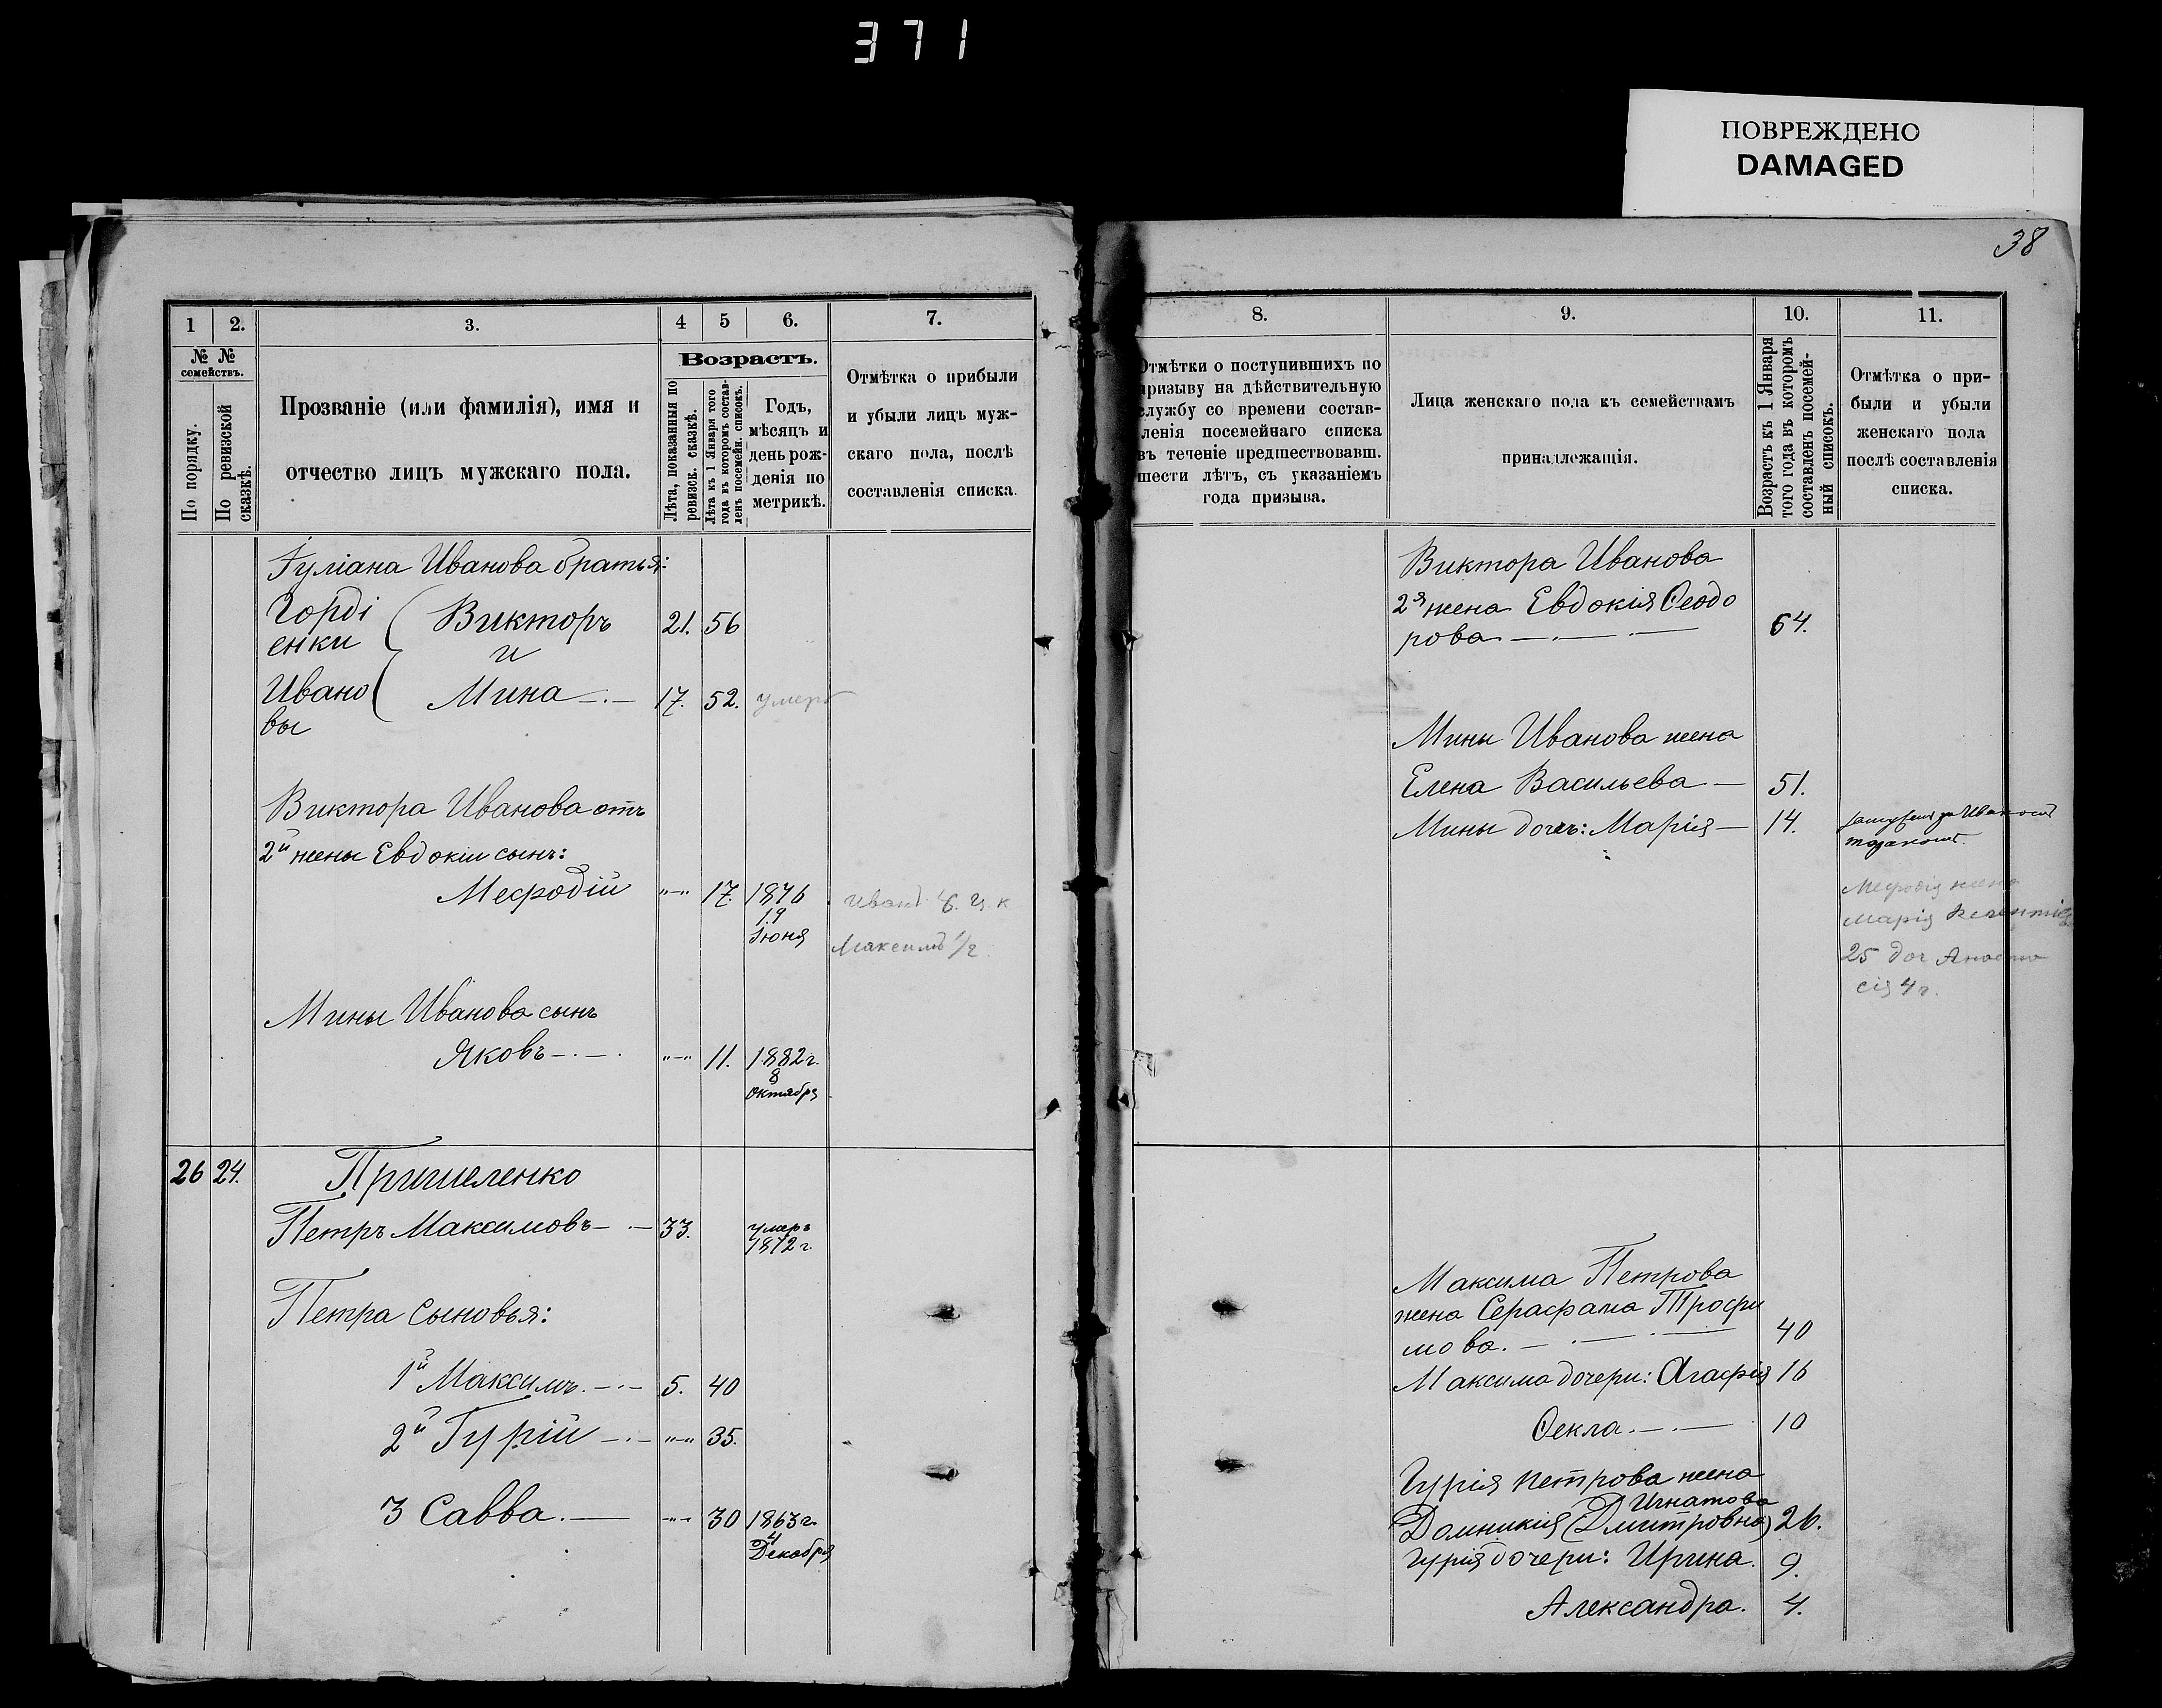 371
ПОВРЕЖДЕНО
DAMAGED
38
1
2.
3.
4
5
6.
7.
№ №
семействъ.
По порядку.
По ревизской
сказкѣ.
Прозваніе (или фамилія), имя и
отчество лицъ мужскаго пола.
Возрастъ.
Лѣта, показанныя по
ревизск. сказкѣ.
Лѣта къ 1 Января того
года въ которомъ состав-
ленъ посемейн. списокъ.
Годъ,
мѣсяцъ и
день рож-
денія по
метрикѣ.
Отмѣтка о прибыли
и убыли лицъ муж-
скаго пола, послѣ
составленія списка.
Іуліана Иванова братья:
Горді
енки
Викторъ 21. 56
и
Ивано
вы
Мина 17. 52. умеръ
Виктора Иванова отъ
2й жены Евдокіи сынъ:
Мефодій "—" 17. 1876
19
Іюня
Максимъ
Мины Иванова сынъ
Яковъ "—" 11. 1882 г.
8
октября
26 24.
Пришеленко
Петръ Максимовъ 33. умеръ
1872 г.
Петра сыновья:
1й Максимъ 5. 40
2й Гурій "—" 35.
3 Савва. "—" 30 1863 г.
4
Декабря
8.
9.
10.
11.
Отмѣтки о поступившихъ по
призыву на дѣйствительную
службу со времени состав-
ленія посемейнаго списка
въ теченіе предшествовавш.
шести лѣтъ, съ указаніемъ
года призыва.
Лица женскаго пола къ семействамъ
принадлежащія.
Возрастъ къ 1 Января
того года въ которомъ
составленъ посемей-
ный списокъ.
Отмѣтка о при-
были и убыли
женскаго пола
послѣ составленія
списка.
Виктора Иванова
2я жена Евдокія Ѳеодо
рова 64.
Мины Иванова жена
Елена Васильева — 51.
Мины дочь: Марія — 14.
Мефодія жена
Марія
25 доч Анаста
сія 4 г.
Максима Петрова
жена Серафама Трофи
мова. 40
Максима дочери: Агафія 16
Ѳекла. 10
Гурія Петрова жена
Игнатова
Домникія (Дмитровна) 26.
Гурія дочери: Ирина. 9.
Александра. 4.